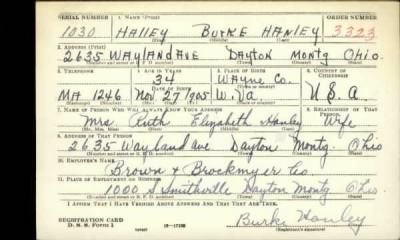 SERIAL NUMBER 1. NAME (Print) ORDER NUMBER
1030 Halley Burke Hanley 3323
2. ADDRESS (Print)
2635 Wayland Ave Dayton Montg Ohio
3. TELEPHONE 4. AGE IN YEARS 5. PLACE OF BIRTH 6. COUNTRY OF CITIZENSHIP
34 Wayne Co.
DATE OF BIRTH
MA 1246 Nov 27 1905 W. Va U.S.A
7. NAME OF PERSON WHO WILL ALWAYS KNOW YOUR ADDRESS 8. RELATIONSHIP OF THAT PERSON
Mrs. Ruth Elizabeth Hanley Wife
(Mr., Mrs., Miss)
9. ADDRESS OF THAT PERSON
2635 Wayland ave Dayton Montg. Ohio
10. EMPLOYER'S NAME
Brown & Brockmyer
11. PLACE OF EMPLOYMENT OR BUSINESS
1000 S. Smithville Dayton Montg Ohio.
I AFFIRM THAT I HAVE VERIFIED ABOVE ANSWERS AND THAT THEY ARE TRUE.
REGISTRATION CARD
D. S. S. Form 1 Burke Hanley
(Registrant's signature)